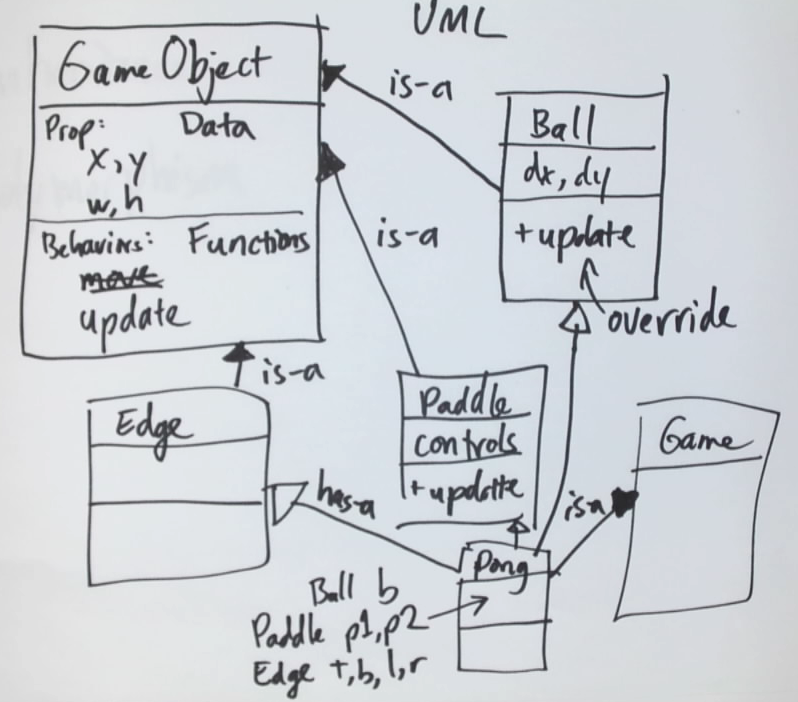 UML
Game Object
Prop: Data
x, y
w, h
Behaviors: Functions
move
update
is-a
Ball
dx, dy
+ update
override
is-a
is-a
Edge
Paddle
controls
+ update
Game
has-a
is-a
Pong
Ball b
Paddle p1, p2
Edge t, b, l, r